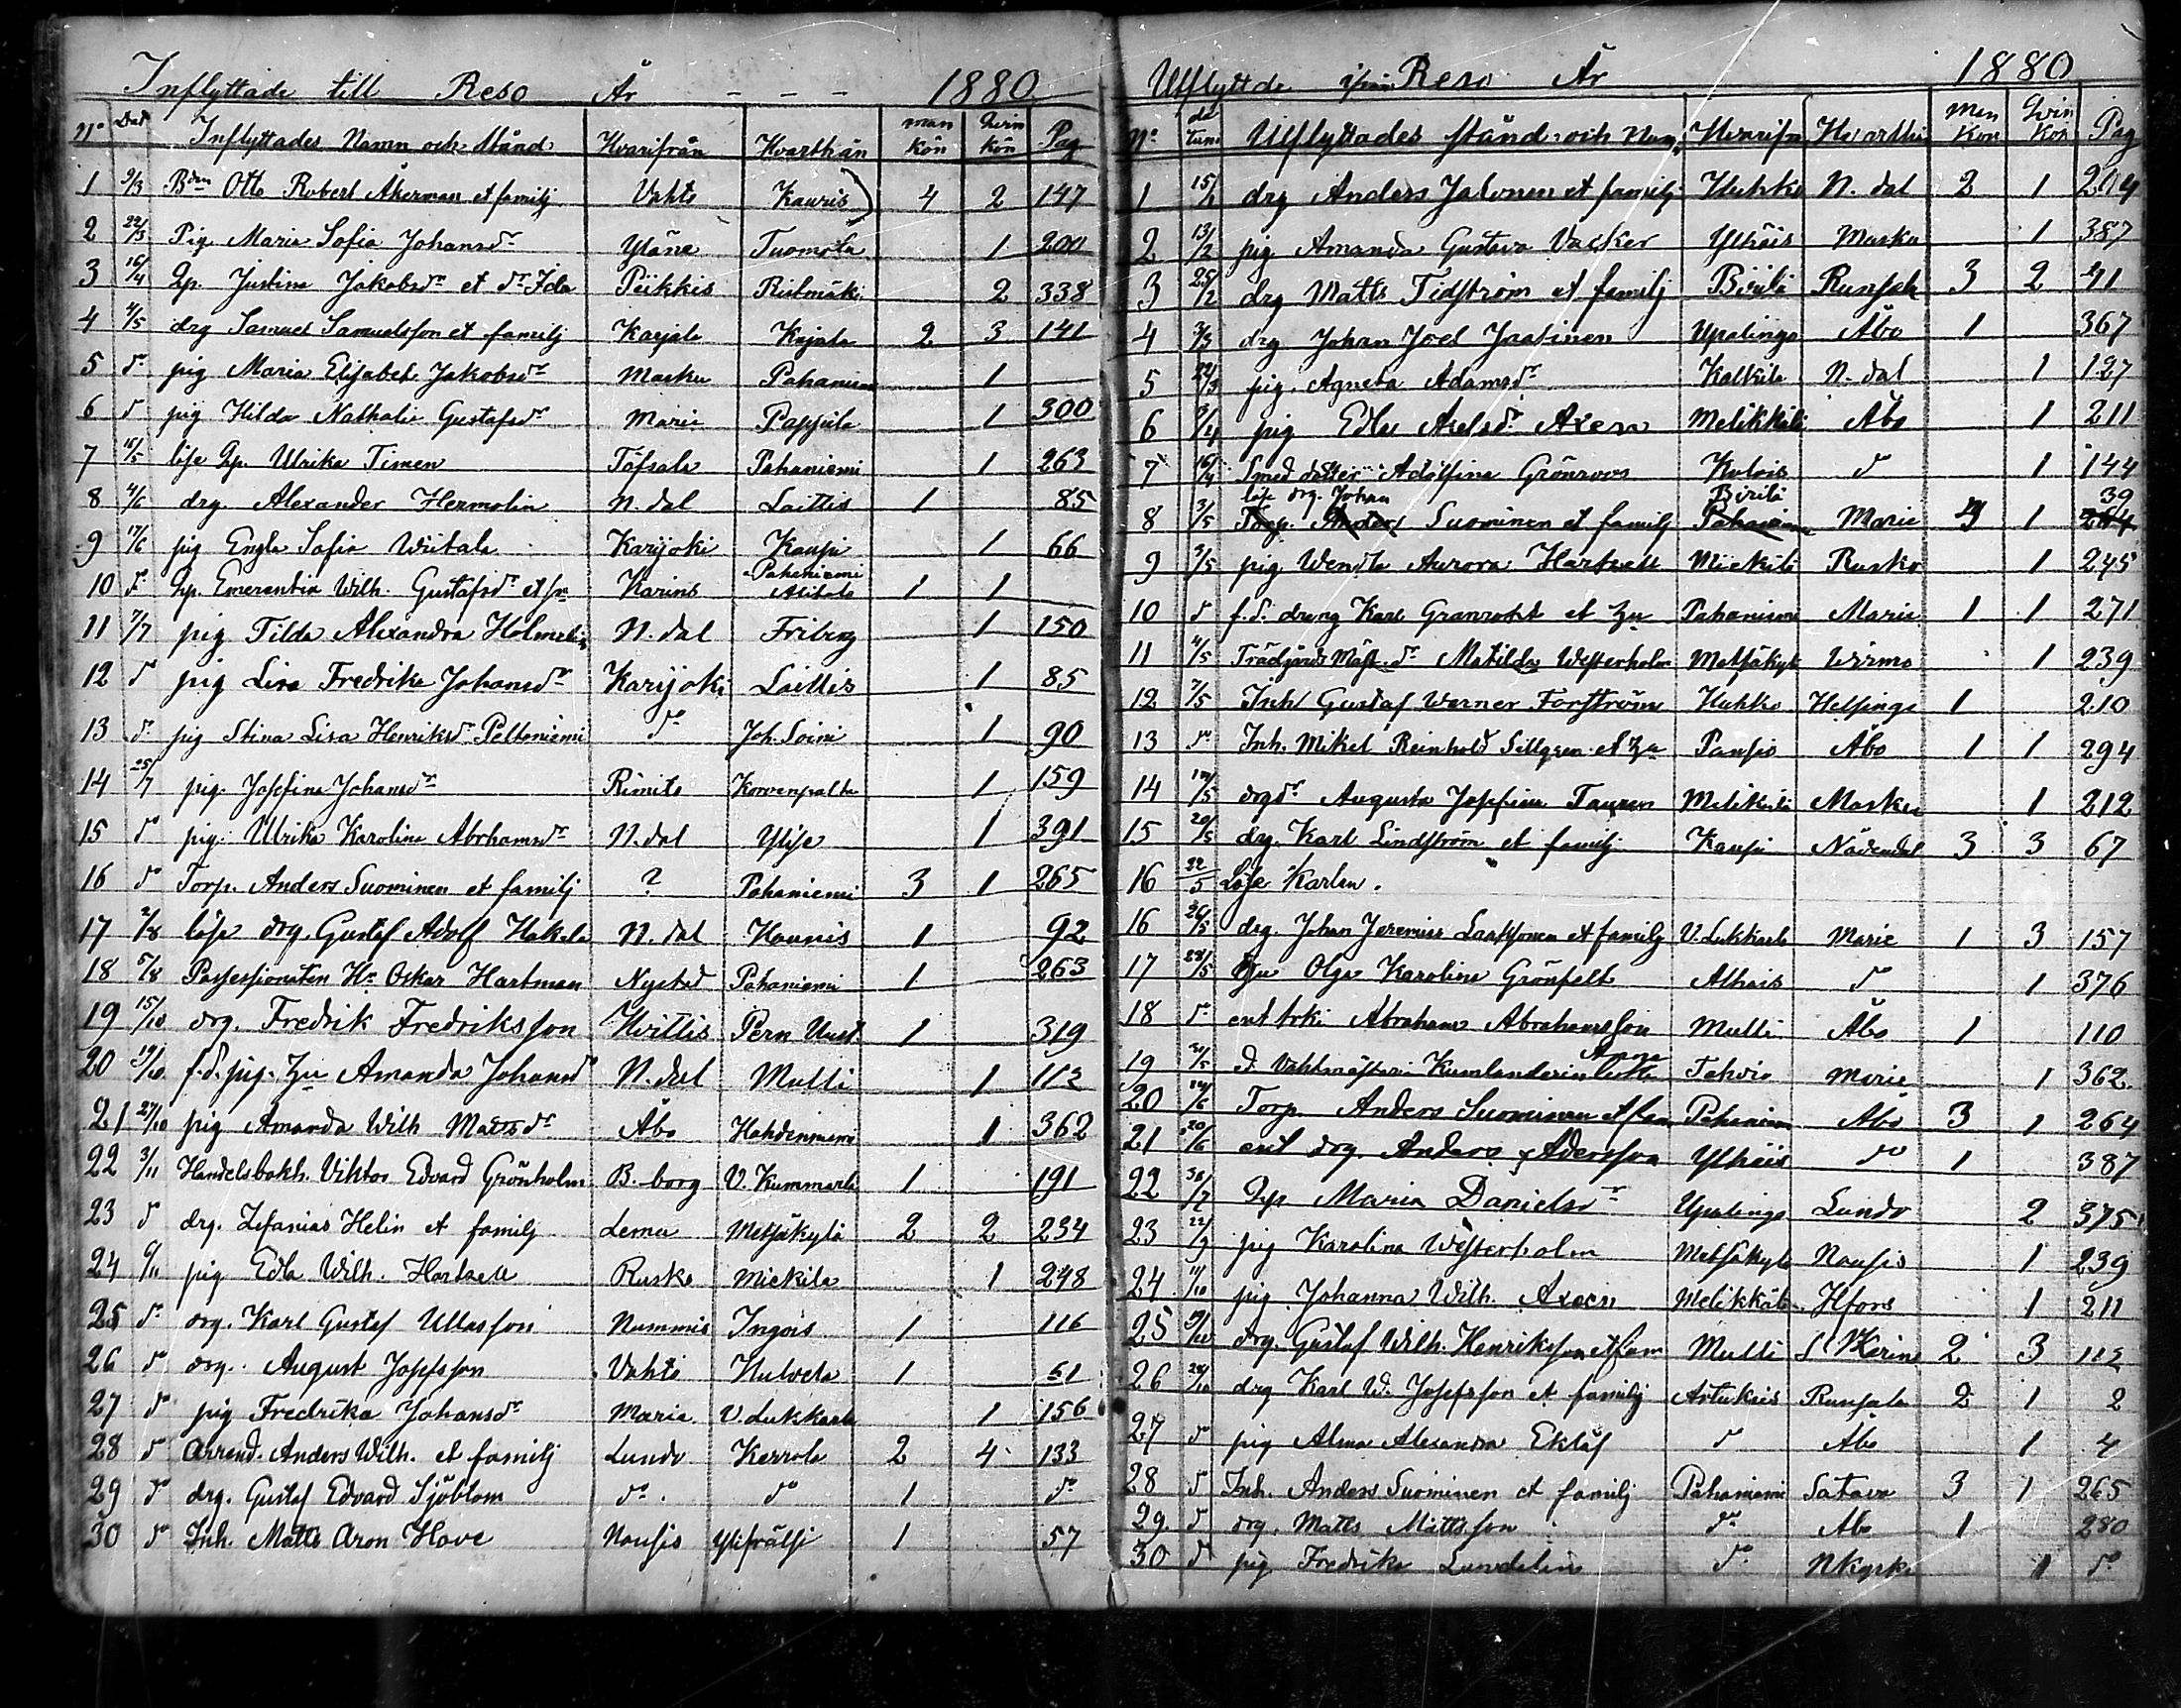 Inflyttade till Reso År - - - 1880
No Dat Inflyttades Namn och Stånd Hvarifrån Hvarthän man kön Qvin kön Pag
1 9/3 Bdn Otto Robert Åkerman et familj Vahto Kauris 4 2 147
2 22/3 Pig. Maria Sofia Johansdr Yläne Tuomola 1 200
3 16/4 Qp. Justina Jakobsdr et dr Ida Piikkis Ristimäki 2 338
4 4/5 drg Samuel Samuelsson et familj Karjala Kajala 2 3 141
5 do pig Maria Elisabet Jakobsdr Masku Pahaniem 1
6 do pig Hilda Nathalia Gustafsdr Marie Pappila 1 300
7 15/5 löse Qp. Ulrika Timen Töfsala Pahaniemi 1 263
8 4/6 drg. Alexander Hermolin N. dal Laittis 1 85
9 17/6 pig Engla Sofia Wiitala Karijoki Kaupi 1 66
10 do Qp. Emerentia Wilh. Gustafsdr et son Karins Pahaniemi Alitalo 1 1
11 7/7 pig Tilda Alexandra Holmelin N. dal Friberg 1 150
12 do pig Lisa Fredrika Johansdr Karijoki Laittis 1 85
13 do pig Stina Lisa Henriksdr Peltoniemi do Joh. Soini 1 90
14 25/7 pig. Josefina Johansdr Rimito Korvenpalta 1 159
15 do pig. Ulrika Karolina Abrahamsdr N. dal Ylise 1 391
16 do Torp. Anders Suominen et familj ? Pahaniemi 3 1 265
17 2/8 löse drg. Gustaf Adolf Hakala N. dal Haunis 1 92
18 5/8 Possessionaten Hr Oskar Hartman Nystad Pahaniemi 1 263
19 15/10 drg. Fredrik Fredriksson Hvittis Pern Uust. 1 319
20 19/10 f.d. pig. Hu Amanda Johansdr N. dal Mulli 1 112
21 27/10 pig Amanda Wilh Mattsdr Åbo Hahdenniemi 1 362
22 3/11 Handelsbokh. Viktor Edvard Grönholm B. borg V. Kummarla 1 191
23 do drg. Zefanias Helin et familj Lemu Metsäkylä 2 2 234
24 6/11 pig Edla Wilh. Hartzell Rusko Mickila 1 248
25 do drg. Karl Gustaf Ullasson Nummis Ingois 1 116
26 do drg. August Josefsson Vahto Hulvela 1 61
27 do pig Fredrika Johansdr Maria V. Lukkarla 1 156
28 do Arrend. Anders Wilh. et familj Lundo Kerrola 2 4 133
29 do drg. Gustaf Edvard Sjöblom do do 1 do
30 do Inh. Matts Aron Hove Nousis Ylifrälsi 1 57
Utflyttde ifrån Reso År 1880
No datum Utflyttades stånd och Namn Hvarifrn Hvarthän Man Kön Qvin Kön Pag
1 15/2 drg Anders Jalonen et familj Huhko N. dal 2 1 204
2 13/2 pig Amanda Gustava Vacker Ylhäis Masku 1 387
3 25/2 drg Matts Tidström et familj Birilä Runsala 3 2 41
4 3/3 drg Johan Joel Jaatinen Upalingo Åbo 1 367
5 22/3 pig. Agneta Adamsdr Kalkila N. dal 1 127
6 9/4 pig Edla Axelsdr Axen Melikkälä Åbo 1 211
7 16/4 Smed dotter Adolfina Grönroos Kulois do 1 144
8 3/5 löse drg. Johan Torp. Anders Suominen et familj Birilä Pahaniem Marie 3 1 39 264
9 3/5 pig Wendla Aurora Hartzell Mickilä Rusko 1 245
10 do f.d. dreng Karl Granrodt et Hu Pahaniemi Marie 1 1 271
11 4/5 Trädgårds Mäst. dr Matilda Westerholm Metsäkyl Wirmo 1 239
12 7/5 Inh Gustaf Werner Forsström Huhko Helsinge 1 210
13 do Inh. Mikel Reinhold Sillgren et Hu Pansio Åbo 1 1 294
14 /5 drgdr Augusta Josefina Tauren Melikkilä Masku 1 212
15 20/5 drg. Karl Lindström et familj Kaupi Nådendal 3 3 67
16 22/5 Löse Karlen.
16 26/5 drg. Johan Jeremias Laaksonen et familj V. Lukkarla Marie 1 3 157
17 28/5 Hu Olga Karolina Grönfelt Alhais do 1 376
18 do enl. Abraham Abrahamsson Mulli Åbo 1 110
19 30/5 d. Vahtmästari Kumlanderin leski Anna Tahvio Marie 1 362
20 /6 Torp. Anders Suominen et fam Pahaniem Åbo 3 1 264
21 20/6 enl drg. Anders Adersson Ylhäis do 1 387
22 /7 Qp Maria Danielsdr Upalingo Lundo 2 375
23 22/9 pig Karolina Westerholm Metsäkyla Nousis 1 239
24 11/10 pig Johanna Wilh. Axen Melikkälä Hfors 1 211
25 /10 drg. Gustaf Wilh. Henriksson et fam Mulli S:t Karins 2 3 112
26 28/10 drg Karl W. Josefsson et familj Artukais Runsala 2 1 2
27 do pig Alma Alexandra Eklöf do Åbo 1 4
28 do Inh. Anders Suominen et familj Pahaniemi Satava 3 1 265
29. do drg. Matts Mattsson do Åbo 1 280
30 do pig Fredrika Lundelin do Nkyrko 1 do